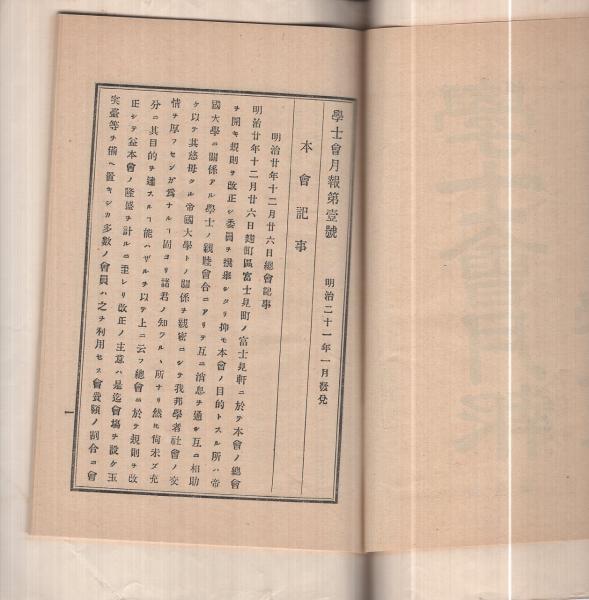 學士會月報第壹號
明治二十一年一月發兌
本會記事
明治廿年十二月廿六日總會記事
明治廿年十二月廿六日麴町區富士見町ノ富士見軒ニ於テ本會ノ總會
ヲ開キ規則ヲ改正シ委員ヲ撰擧シタリ抑モ本會ノ目的トスル所ハ帝
國大學ニ關係アル學士ノ親睦會合ニアリテ互ニ消息ヲ通シ互ニ相助
ケ以テ其慈母タル帝國大學トノ關係ヲ親密ニシテ我邦學者社會ノ交
情ヲ厚フセンガ爲ナルヿ固ヨリ諸君ノ知ラルヽ所ナリ然ヒ尙未ズ充
分ニ其目的ヲ達スルヿ能ハザルヲ以テ上ニ云フ總會ニ於テ規則ヲ改
正シテ益本會ノ隆盛ヲ計ルニ至レリ改正ノ主意ハ是迄會塲ヲ設ケ玉
突臺等ヲ備ヘ置キシカ多數ノ會員ハ之ヲ利用セス會費額ノ割合ニ會
一